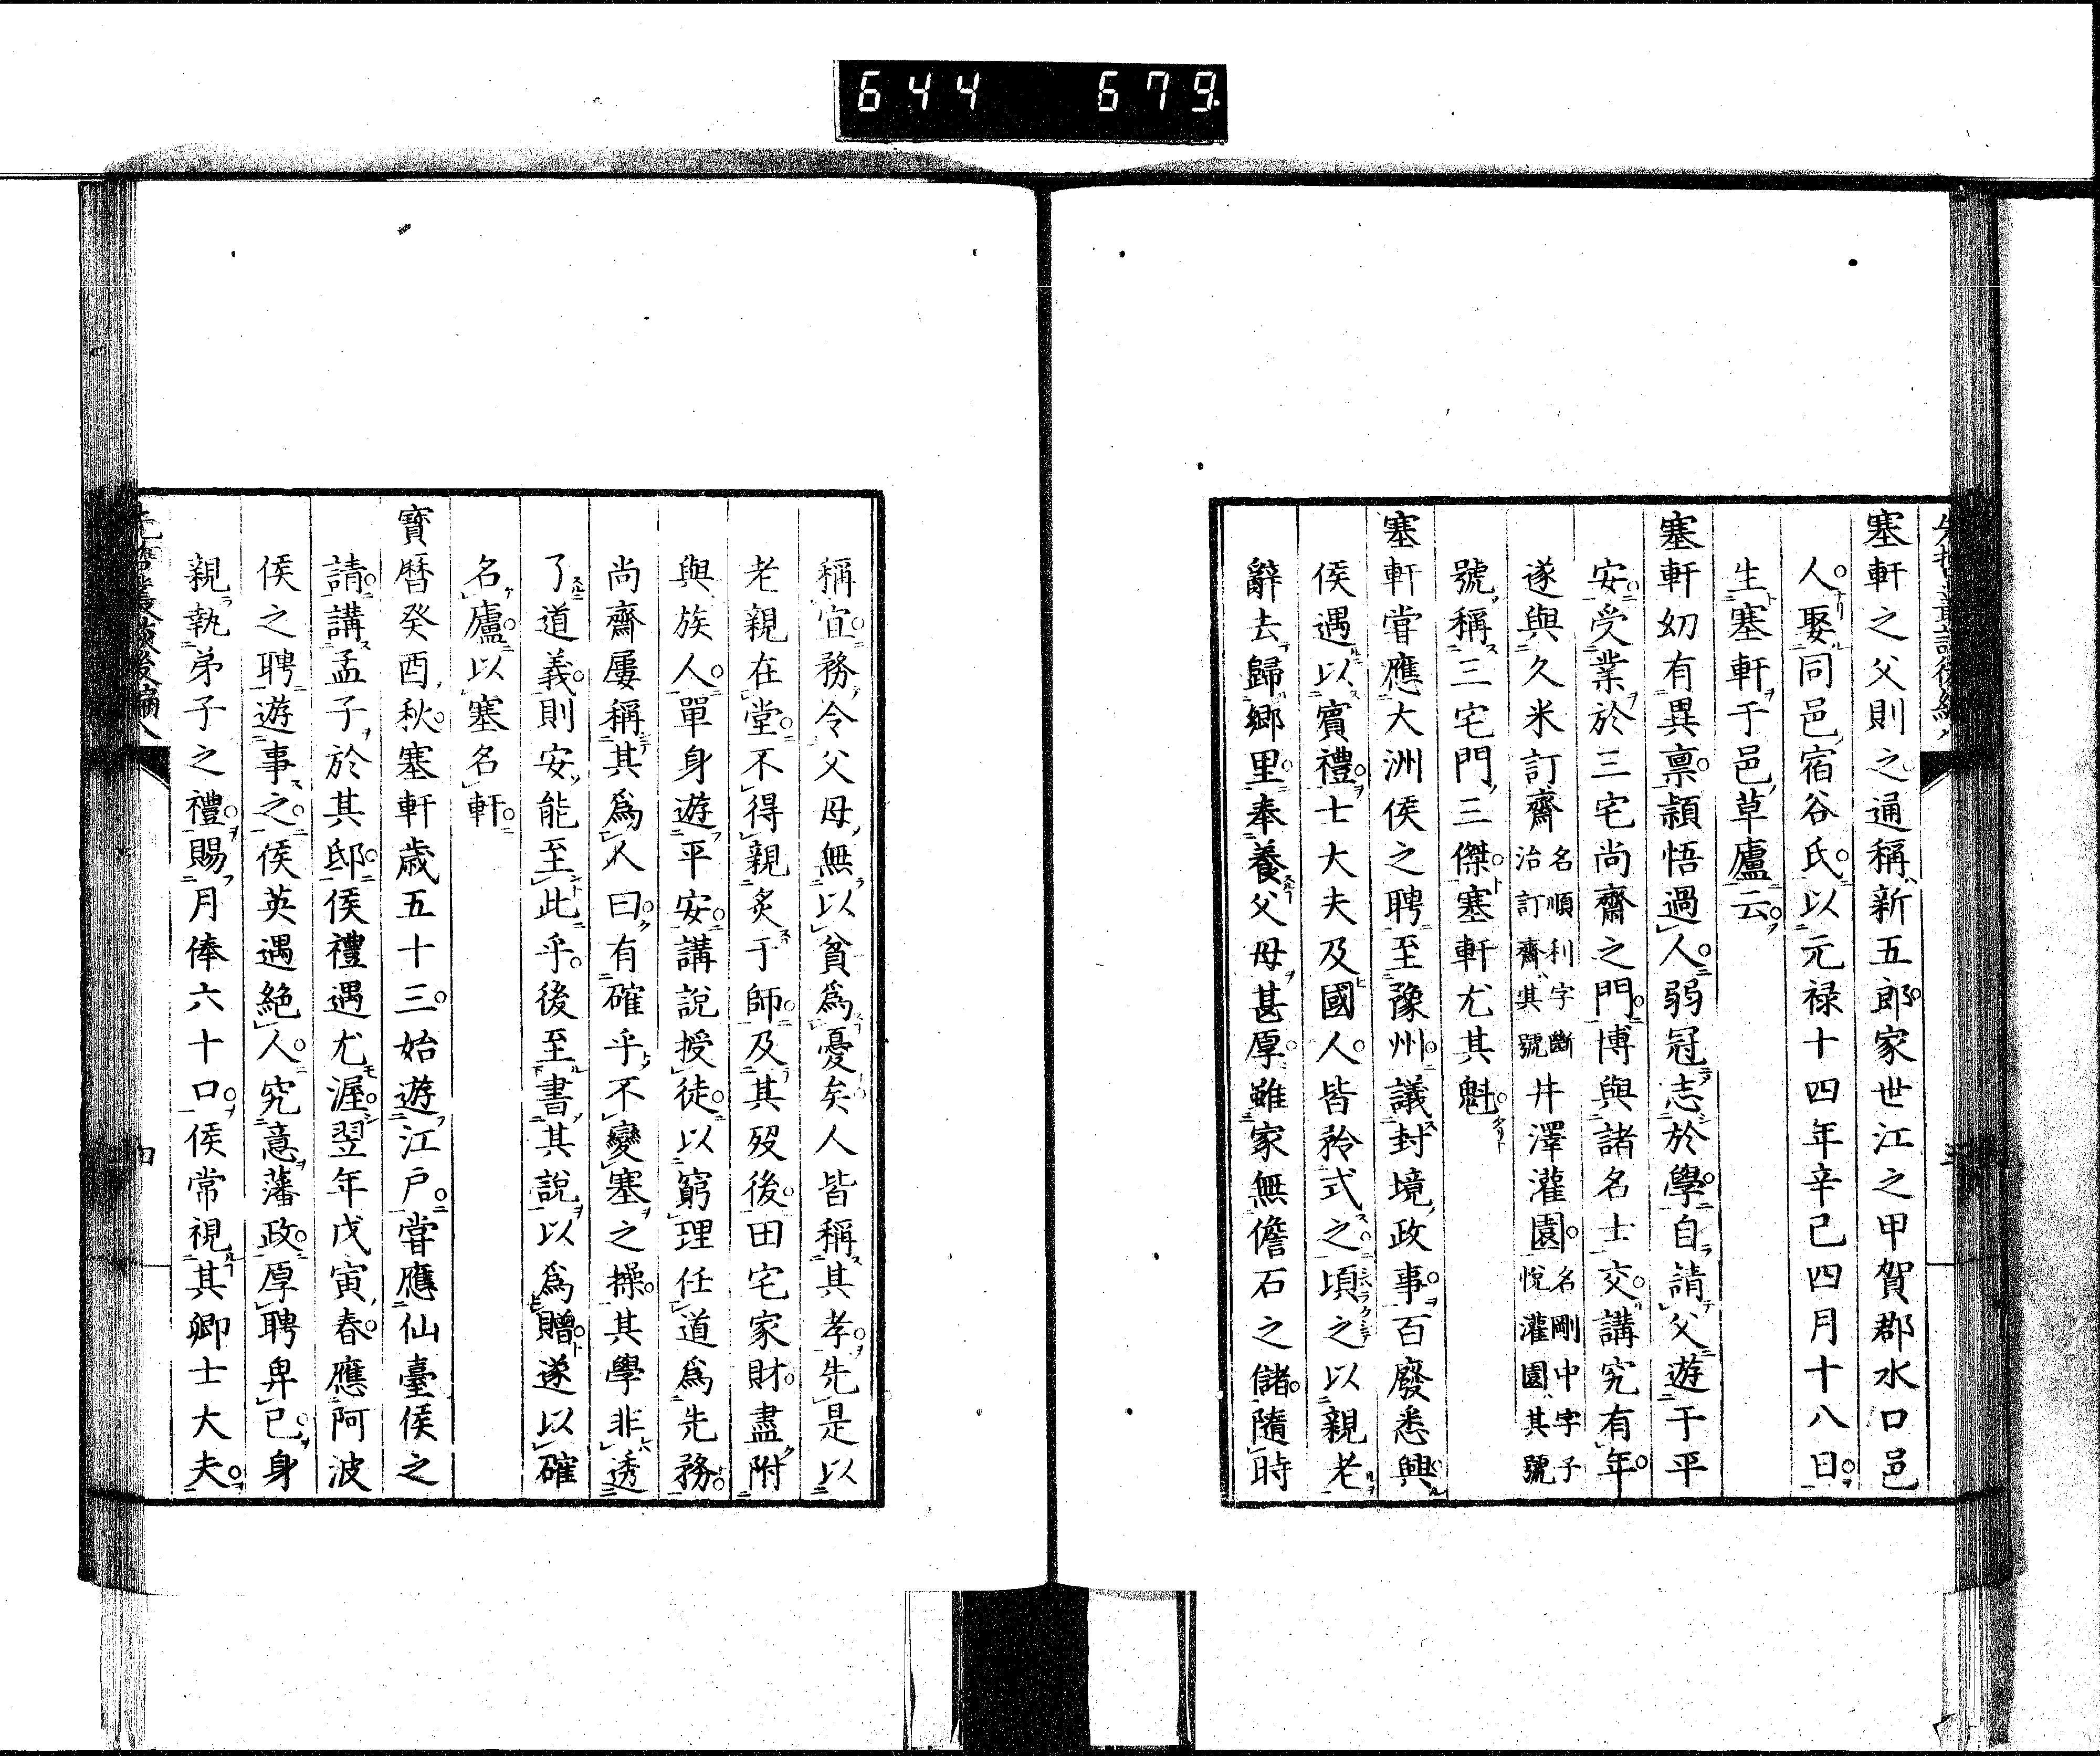 644 679
塞軒之父則之通稱新五郎家世江之甲賀郡水口邑
人娶同邑宿谷氏以元禄十四年辛巳四月十八日
生塞軒于邑草廬云
塞軒幼有異禀頴悟過人弱冠志於學自請父遊于平
安受業於三宅尚齋之門博與諸名士交講究有年
遂與久米訂齋名順利字斷治訂齋其號井澤灌園名剛中字子悅灌園其號
號稱三宅門三傑塞軒尤其魁
塞軒嘗應大洲侯之聘至豫州議封境政事百廢悉興
侯遇以賓禮士大夫及國人皆矜式之頃之以親老
辭去歸鄉里奉養父母甚厚雖家無儋石之儲隨時
稱宜務令父母無以貧爲憂矣人皆稱其孝先是以
老親在堂不得親炙于師及其歿後田宅家財盡附
與族人單身遊平安講說授徒以窮理任道爲先務
尚齋屢稱其爲人曰有確乎不變塞之操其學非透
了道義則安能至此乎後至書其說以爲贈遂以確
名廬以塞名軒
寳暦癸酉秋塞軒歳五十三始遊江戸嘗應仙臺侯之
請講孟子於其邸侯禮遇尤渥翌年戊寅春應阿波
侯之聘遊事之侯英遇絶人究意藩政厚聘卑已身
親執弟子之禮賜月俸六十口侯常視其卿士大夫